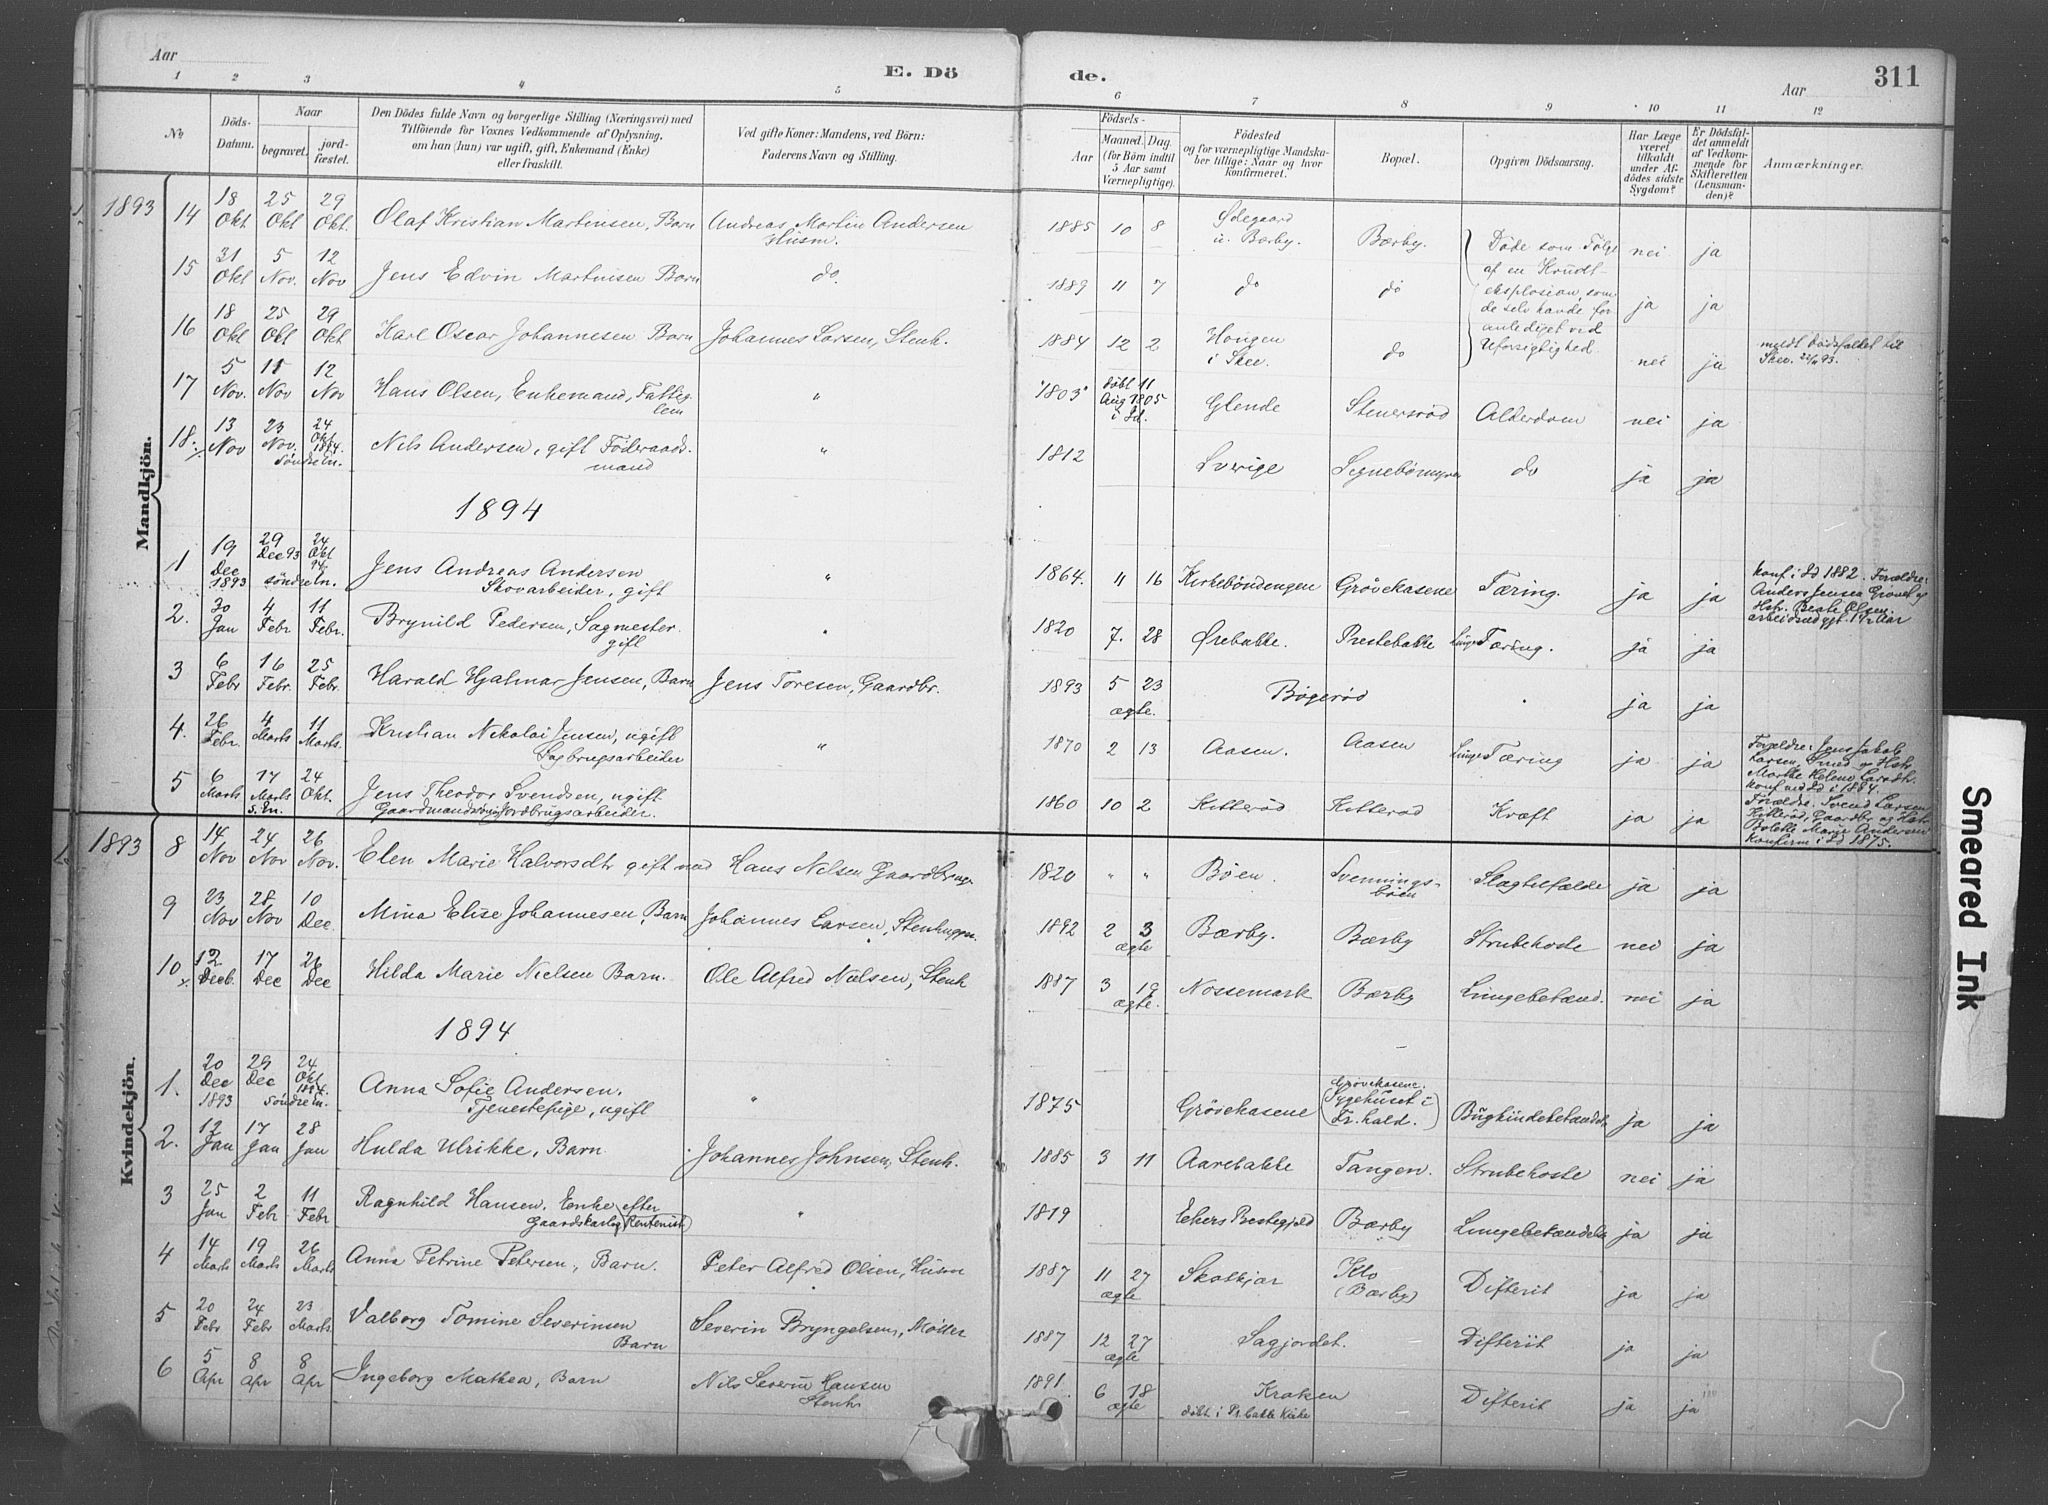 Aar
E. Dö
de.
Aar
311
1 2 3 4 5 6 7 8 9 10 11 12
No
Döds-Datum.
Naar
begravet.
jord-fæstet.
Den Dödes fulde Navn og borgerlige Stilling (Næringsvei) med
Tilföiende for Voxnes Vedkommende af Oplysning,
om han (hun) var ugift, gift, Enkemand (Enke)
eller fraskilt.
Ved gifte Koner: Mandens, ved Börn:
Faderens Navn og Stilling.
Födsels-
Aar
Maaned. Dag.
(for Börn indtil
5 Aar samt
Værnepligtige).
Födested
og for værnepligtige Mandska-
ber tillige: Naar og hvor
konfirmeret.
Bopæl.
Opgiven Dödsaarsag.
Har Læge
været
tilkaldt
under Af-
dödes sidste
Sygdom?
Er Dödsfal-
det anmeldt
af Vedkom-
mende for
Skifteretten
(Lensman-
den)?
Anmærkninger.
Mandkjön.
1893 14 18 Okt 25 Okt 29 Okt. Olaf Kristian Martinsen, Barn Andreas Martin Andersen Husm. 1885 10 8 Ødegaard u. Bærby. Bærby. nei ja
Døde som Følge
af en Krudt-
eksplosion, som
de selv havde for-
anlediget ved
Uforsigtighed
15 31 Okt 5 Nov. 12 Nov Jens Edvin Martinsen Barn do. 1889 11 7 do do ja ja
16 18 Okt 25 Okt 29 Okt Karl Oscar Johannesen Barn Johannes Larsen, Stenh. 1884 12 2 Hougen i Skee. do nei ja meldt dødsfaldet til Skee.
17 5 Nov. 11 Nov 12 Nov Hans Olsen, Enkemand, Fattiglem " "1803" døbt 11 Aug 1805 i Id. Glende Stenersrød Alderdom nei ja
18. 13 Nov 23 Nov. 24 Okt 1894. søndre En. Nils Andersen, gift Føderaadsmand " 1812 Sverige do ja ja
1894
1 19 Dec 1893 29 Dec 93 24 Okt 94. søndre En. Jens Andreas Andersen Skovarbeider, gift " 1864. 11 16 Kirkebøndengen Grövekasene Tæring. ja ja
konf i Id 1882. Forældre:
Anders Jensen Grøvek og
Hstr. Beate Olsen.
2. 30 Jan 4 Febr 11 Febr. Brynild Pedersen, Sagmester. gift " 1820 7. 28 Ørebakke. Prestebakke Lunge Tæring. ja ja
3 6 Febr 16 Febr. 25 Febr. Harald Hjalmar Jensen, Barn Jens Toresen, Gaardbr. 1893 5 23 ægte. Bøgerød " ja ja
4. 26 Febr. 4 Marts 11 Marts. Kristian Nikolai Jensen, ugift Sagbrugsarbeider " 1870 2 13 Aasen. Aasen Lunge Tæring ja ja
Forældre: Jens Jakob
Larsen, Smed og Hstr.
Marthe Helene Larsdtr.
konf ved Id i 1884.
5 6 Marts 17 Marts s. En. 24 Okt. Jens Theodor Svendsen, ugift Gaardmandssøn, Jordbrugsarbeider. 1860 10 2 Kitterød Kitterød Kræft ja ja
Forældre: Svend Larsen
Kitterød, Gaardbr og Hstr
Bolette Marie Andersen
Konfirm i Id 1875.
Kvindekjön.
1893 8 14 Nov 24 Nov 26 Nov. Elen Marie Halvorsdtr gift med Hans Nilsen Gaardbrug. 1820 " " Bøen. Svenningsbøen Slagtilfælde ja ja
9 23 Nov 28 Nov 10 Dec. Mina Elise Johannesen, Barn Johannes Larsen, Stenhugger. 1892 2 3 ægte Bærby. Bærby Strubehoste nei ja
10 12 Decb. 17 Dec 26 Dec Hilda Marie Nielsen Barn. Ole Alfred Nielsen, Stenh 1887 3 19 ægte. Nossemark Bærby Lungebetænd. nei ja
1894
1. 20 Dec 1893 29 Dec 24 Okt 1894. søndre En. Anna Sofie Andersen. Tjenestepige, ugift " 1875 Grövekasene Grövekasene. (Sygehuset i Fr. hald.) Bughindebetændels ja ja
2. 12 Jan 17 Jan 28 Jan Hulda Ulrikke, Barn Johannes Johnsen, Stenh. 1885 3 11 Aarebakke Tangen. Strubehoste nei ja
3 25 Jan 2 Febr 11 Febr Ragnhild Hansen. Enke efter Gaardskarl, (Rentenist) " 1819 Bærby Lungebetændelse ja ja
4 14 Marts 19 Marts 26 Marts Anna Petrine Petersen, Barn. Peter Alfred Olsen, Husm 1887 11 27 ægte Skotkjær Klo (Bærby) Difterit ja ja
5 20 Febr 24 Febr 23 Marts. Valborg Tomine Severinsen Barn Severin Bryngelsen, Møller 1887 12 27 ægte Sagjordet. Difterit ja ja
6 5 Apr 8 Apr 8 Apr Ingeborg Mathea, Barn Nils Severin Hansen Stenh 1891. 6 18 ægte Kraken døbt i Pr. bakke Kirke Difterit ja ja
Smeared Ink